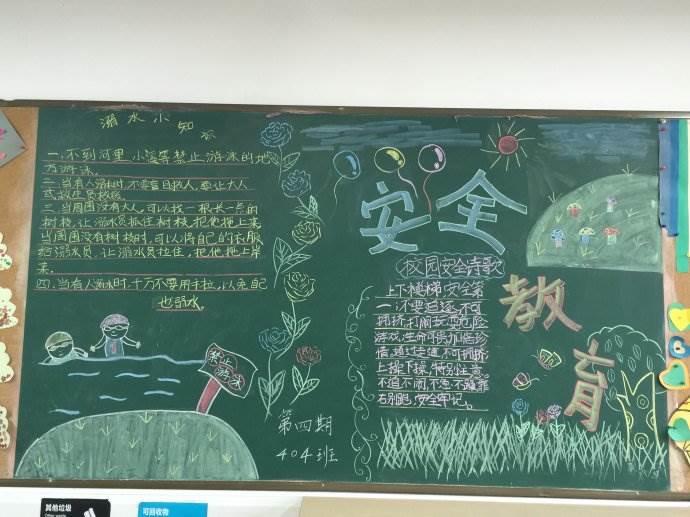 溺水小
知
一.不到河里,小溪等禁止游泳的地
方游泳。
二.当有人溺水时,不要盲目救人,要让大人
三.当周围没有大人,可以找一根长一点的
树枝,让溺水员抓住树枝,把他拖上来
当周围没有树枝时,可以将自己的衣服
给溺水员,让溺水员拉住,把他拖上岸
来。
四.当有人溺水时,千万不要用手拉,以免自己
也溺水。
禁止
游泳
第四期
404班
安全
教育
校园安全诗歌
上下楼梯安全第
一,不要追逐,不可
拥挤,打闹玩耍危险
游戏,生命可贵加倍珍
惜,通过走道,不可拥挤
上操下操,特别注意。
不追不闹,不急不躁靠
右侧跑,安全牢记。
其他垃圾
可回收物